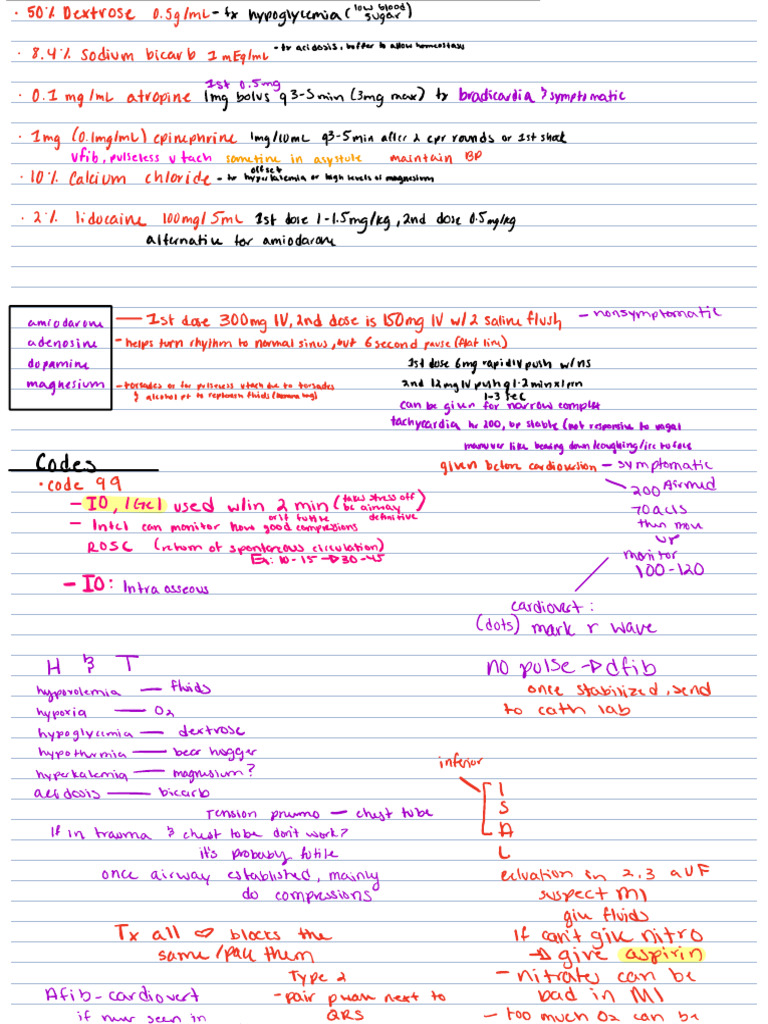 • 50% Dextrose 0.5g/mL - tx hypoglycemia (low blood sugar)
• 8.4% Sodium bicarb 1 mEq/mL - tx acidosis, buffer to allow homeostasis
1st 0.5mg
• 0.1 mg/mL atropine 1mg bolus q3-5min (3mg max) tx bradicardia & symptomatic
• 1mg (0.1mg/mL) epinephrine 1mg/10mL q3-5min after 2 cpr rounds or 1st shock
vfib, pulseless v tach sometime in asystole maintain BP
offset
• 10% Calcium chloride - tx hyperkalemia or high levels of magnesium
• 2% lidocaine 100mg/5mL 1st dose 1-1.5mg/kg, 2nd dose 0.5mg/kg
alternative for amiodarone
amiodarone — 1st dose 300mg IV, 2nd dose is 150mg IV w/2 saline flush - nonsymptomatic
adenosine - helps turn rhythm to normal sinus, but 6 second pause (flat line)
dopamine
1st dose 6mg rapid IV push w/ns
magnesium - torsades or for pulseless vtach due to torsades
& alcohol pt to replenish fluids (banana bag)
2nd 12mg IV push q1-2min x1 prn
1-3 sec
can be given for narrow complex
tachycardia hr 200, bp stable (not responsive to vagal
manuver like bearing down/coughing/ice to face
given before cardioversion - symptomatic
Codes
• code 99
- IO, IGel used w/in 2 min (takes stress off be airway)
- Intel can monitor how good compressions
or if futile definitive
ROSC (return of spontaneous circulation)
Ex: 10-15 → 30-45
- IO: Intraosseous
200 Airmed
70 acls
then move
up
monitor
100-120
cardiovert:
(dots) mark r wave
no pulse → dfib
once stabilized, send
to cath lab
H & T
hypovolemia — fluids
hypoxia — O2
hypoglycemia — dextrose
hypothermia — bear hugger
hyperkalemia — magnesium?
acidosis — bicarb
Tension pneumo — chest tube
If in trauma & chest tobe don't work?
it's probably futile
once airway established, mainly
do compressions
inferior
I
S
A
L
elevation in 2.3 aVF
suspect MI
give fluids
If can't give nitro
→ give aspirin
- nitrates can be
bad in MI
- too much O2 can be
Tx all ♡ blocks the
same/pace them
Type 2
- pair p wave next to
QRS
Afib - cardiovert
if new seen in